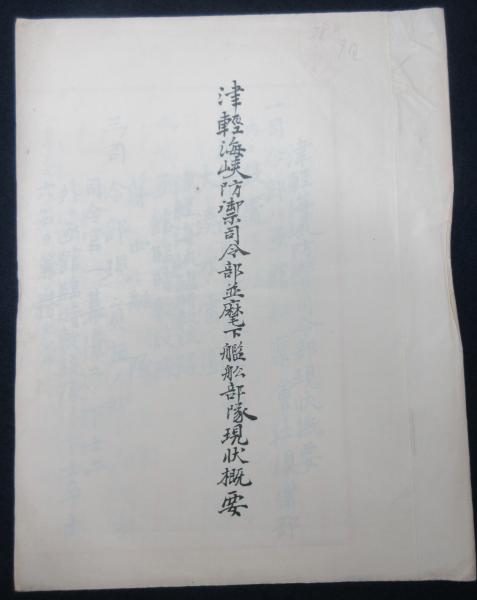 津輕海峽防禦司令部並麾下艦舩部隊現狀概要